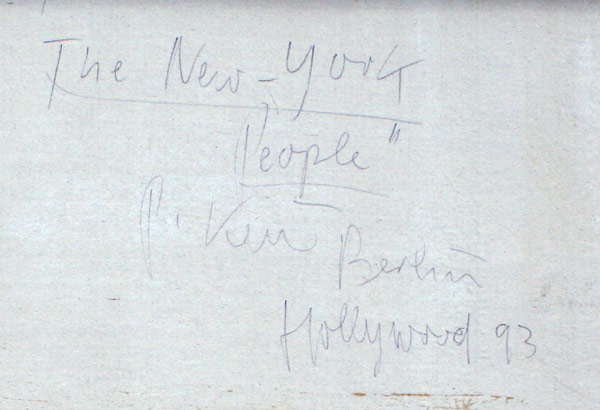 The New-York
People"
P. Ken
Berlin
Hollywood 93